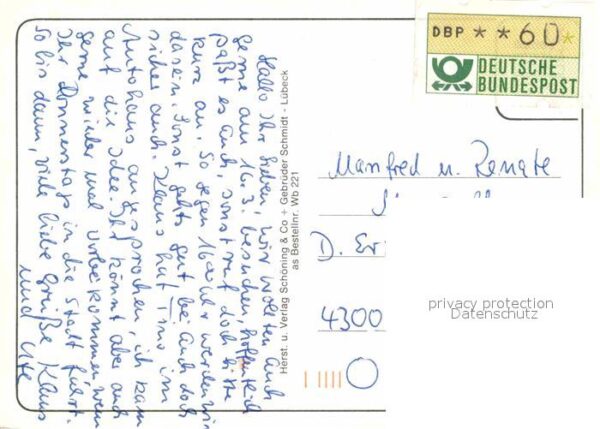 Hallo Ihr Lieben, wir wollten Euch
gerne am 16.3. besuchen, hoffentlich
paßt es Euch, sonst ruf doch bitte
kurz an. So gegen 16 Uhr werden wir
da sein. Sonst gehts gut bei Euch doch
sicher auch. Klaus hat Tino im
Autohaus angesprochen, ich kam
auf die Idee. Ihr könnt aber auch
gerne wieder mal vorbeikommen wenn
Ihr Donnerstags in die Stadt fährt.
So bis dann, viele liebe Grüße Klaus
und Ute
Herst. u. Verlag Schöning & Co + Gebrüder Schmidt - Lübeck
as Bestellnr. Wb 221
DBP * * 60 *
DEUTSCHE
BUNDESPOST
Manfred u. Renate
D. Er
4300
privacy protection
Datenschutz